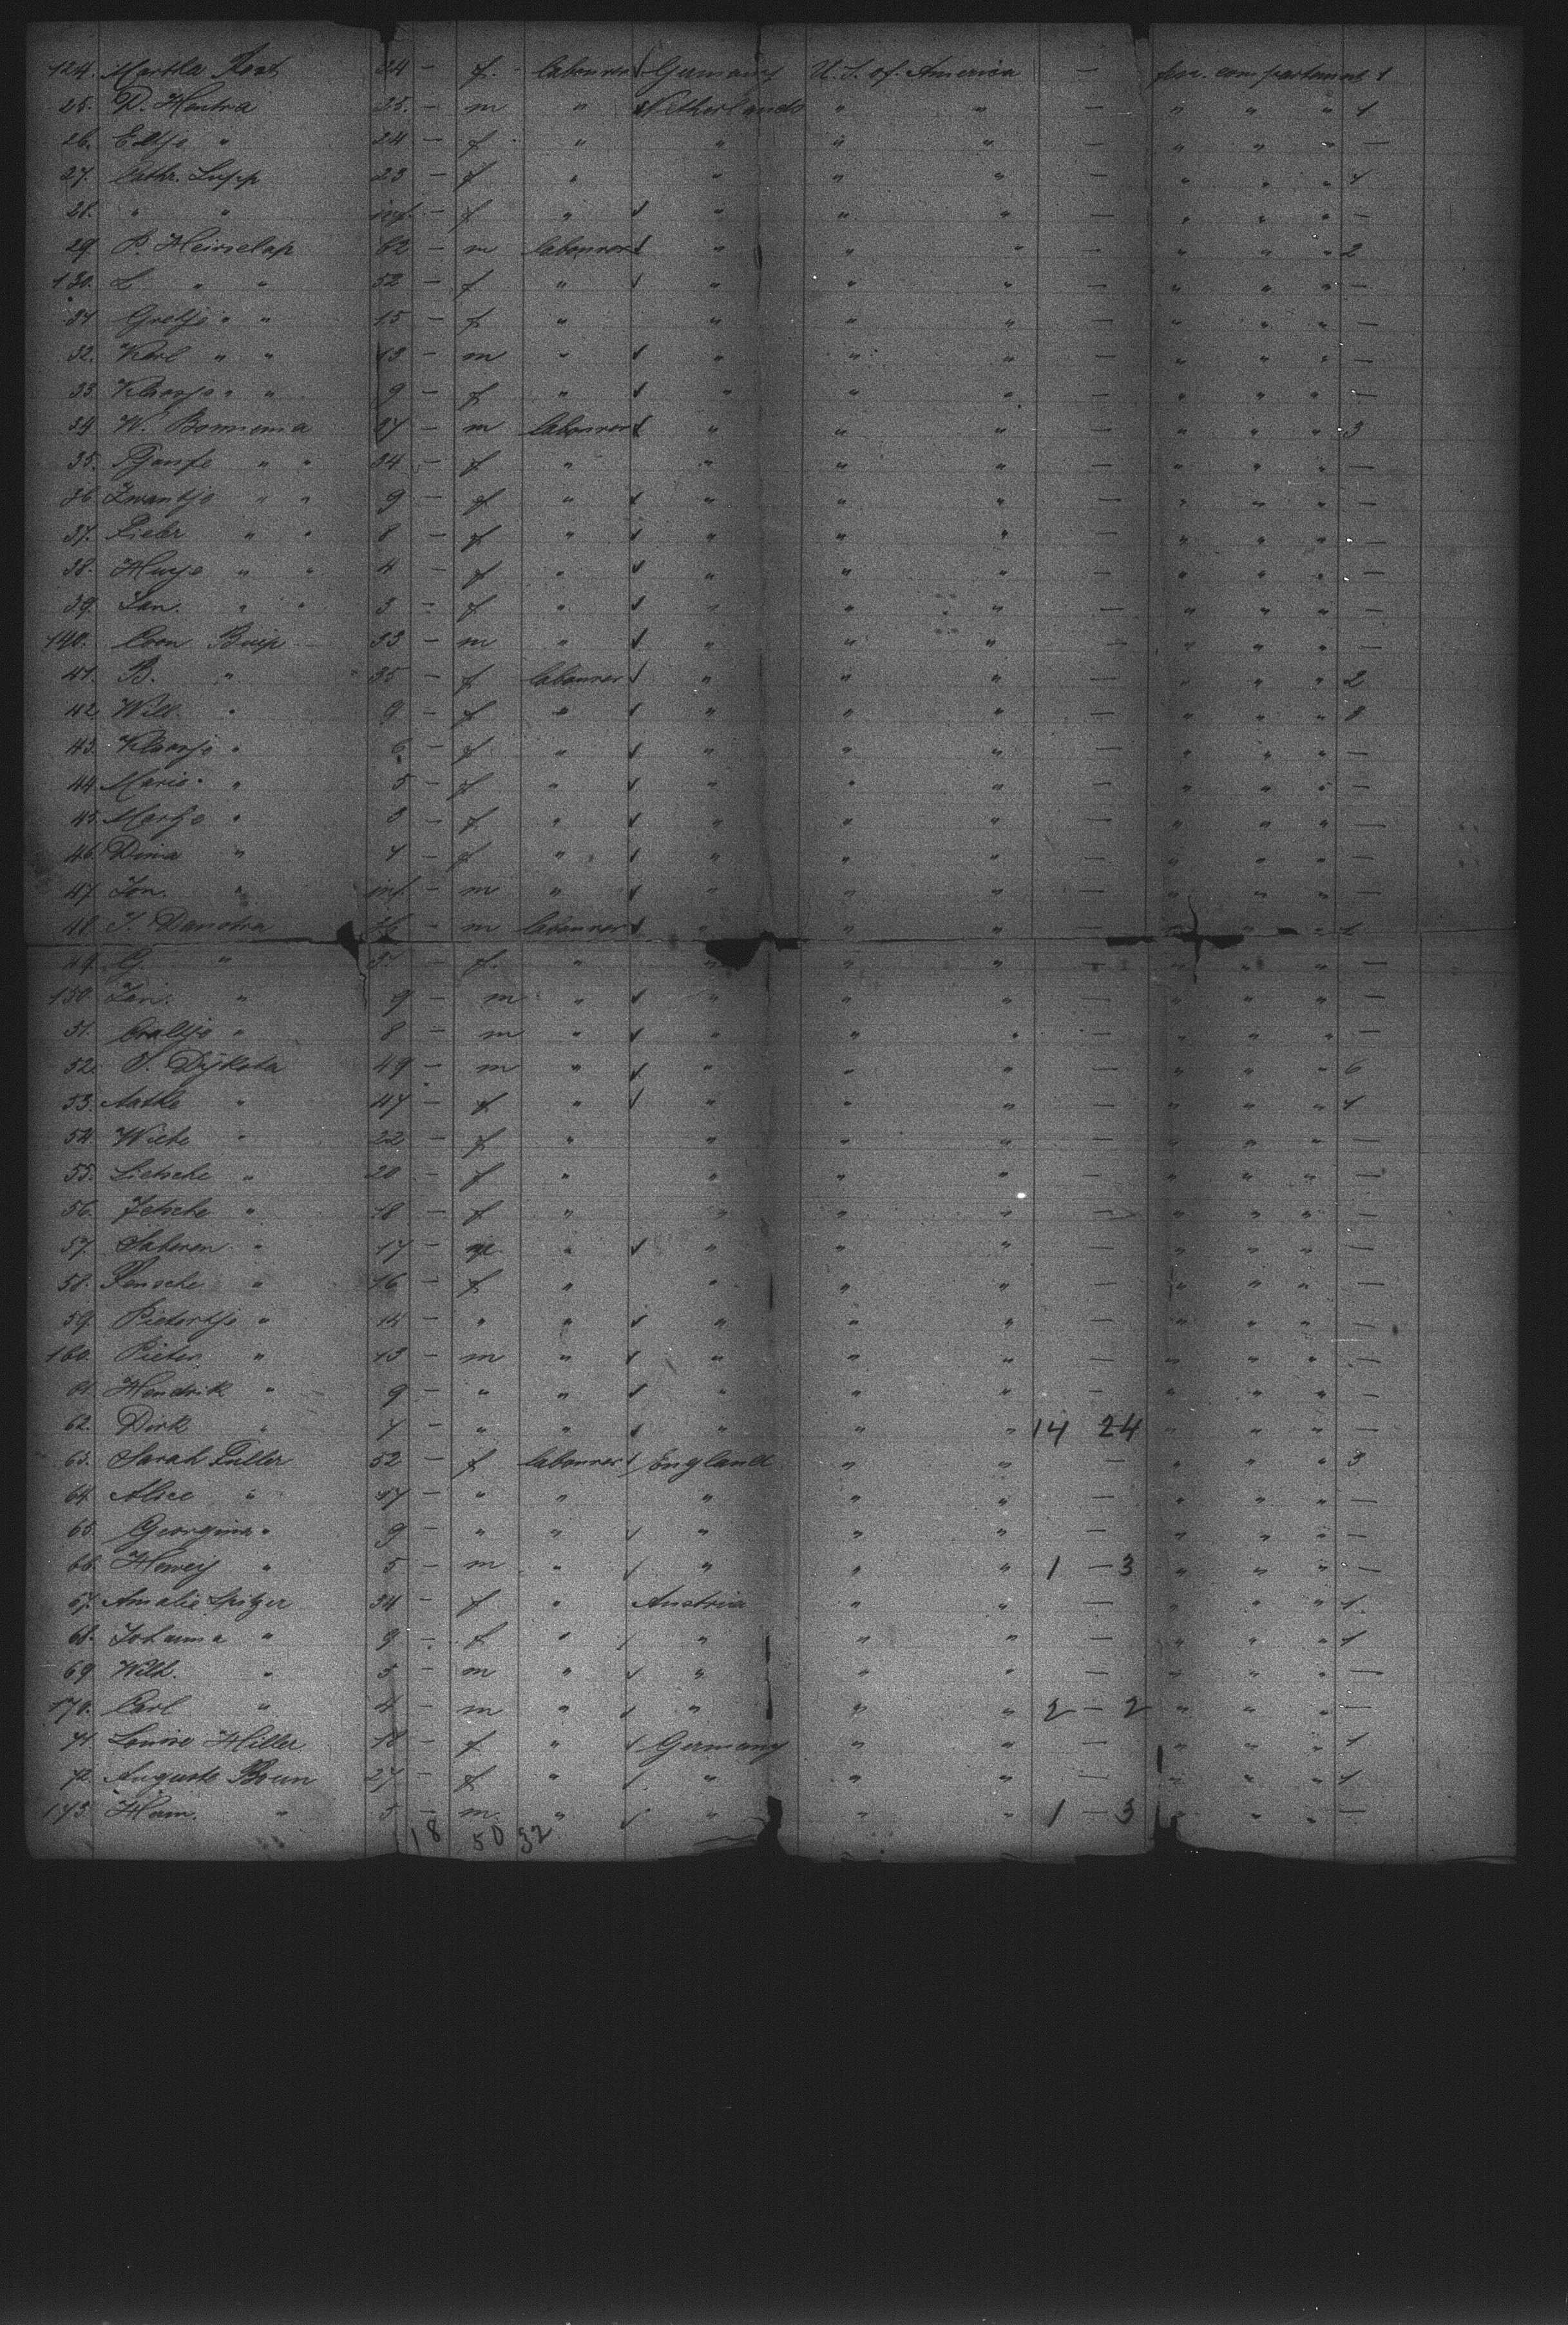 124. Martha Rost 24 – f. – labourer Germany U. S. of America – fore compartment 1
25. D. Hentra 25. – m " Netherlands " " – " " " 1
26. Eltje " 24 – f " " " " – " " " –
27. Cathr. Lupp 23 – f " " " " – " " " 1
28. " " inf. – f " " " " – " " " –
29. P. Heinselap 62 – m labourer " " " – " " " 2
130. L " " 52 – f " " " " – " " " –
31 Gretje " " 15 – f " " " " – " " " –
32. Karl " " 13 – m " " " " – " " " –
33. Klaasje " " 9 – f " " " " – " " " –
34 W. Bommema 37 – m labourer " " " – " " " 3
35. " " 34 – f " " " " – " " " –
36. Zwantje " " 9 – f " " " " – " " " –
37. Pieter " " 8 – f " " " " – " " " –
38. " " 4 – f " " " " – " " " –
39. Jan. " " 3 – f " " " " – " " " –
140. Coon Buip 33 – m " " " " – " " " –
41. B. " 35 – f labourer " " " – " " " 2
42. Will. " 9 – f " " " " – " " " 8
43. Klaasje " 6 – f " " " " – " " " –
44. Maria " 5 – f " " " " – " " " –
45. Martje " 3 – f " " " " – " " " –
46. Dina " 1 – f " " " " – " " " –
47. Jon. " inf. – m " " " " – " " " –
48. J. Danstra 36 – m labourer " " " – " " " 1
49. G. " – f. " " " " – " " " –
150. Jan. " 9 – m " " " " – " " " –
51. " 8 – m " " " " – " " " –
52. S. Dijkstra 49 – m " " " " – " " " 6
53. Aatke " 47 – f " " " " – " " " 1
54. Wieke " 22 – f " " " " – " " " –
55. Lietsche " 20 – f " " " " – " " " –
56. Jetsche " 18 – f " " " " – " " " –
57. " 17 – m " " " " – " " " –
58. Rensche " 16 – f " " " " – " " " –
59. Pietertje " 14 – " " " " " – " " " –
160. Pieter " 13 – m " " " " – " " " –
61. Hendrik " 9 – " " " " " – " " " –
62. Dirk " 7 – " " " " " 14 24 " " " –
63. Sarah Fuller 52 – f labourer England " " – " " " 3
64. Alice " 17 – " " " " " – " " " –
65. Georgina " 9 – " " " " " – " " " –
66. Hewey " 5 – m " " " " 1 – 3 " " " –
67. Amalie Spitzer 34 – f " Austria " " – " " " 1.
68. Johanna " 9 – f " " " " – " " " 1
69. Wilh. " 5 – m " " " " – " " " –
170. Carl " 4 – m " " " " 2 – 2 " " " –
71. Louise Hiller 18 – f " Germany " " – " " " 1
72. Auguste Brun 27 – f " " " " – " " " 1
173. Herm. " 5 – m " " " " 1 – 3 " " " –
18 50 32